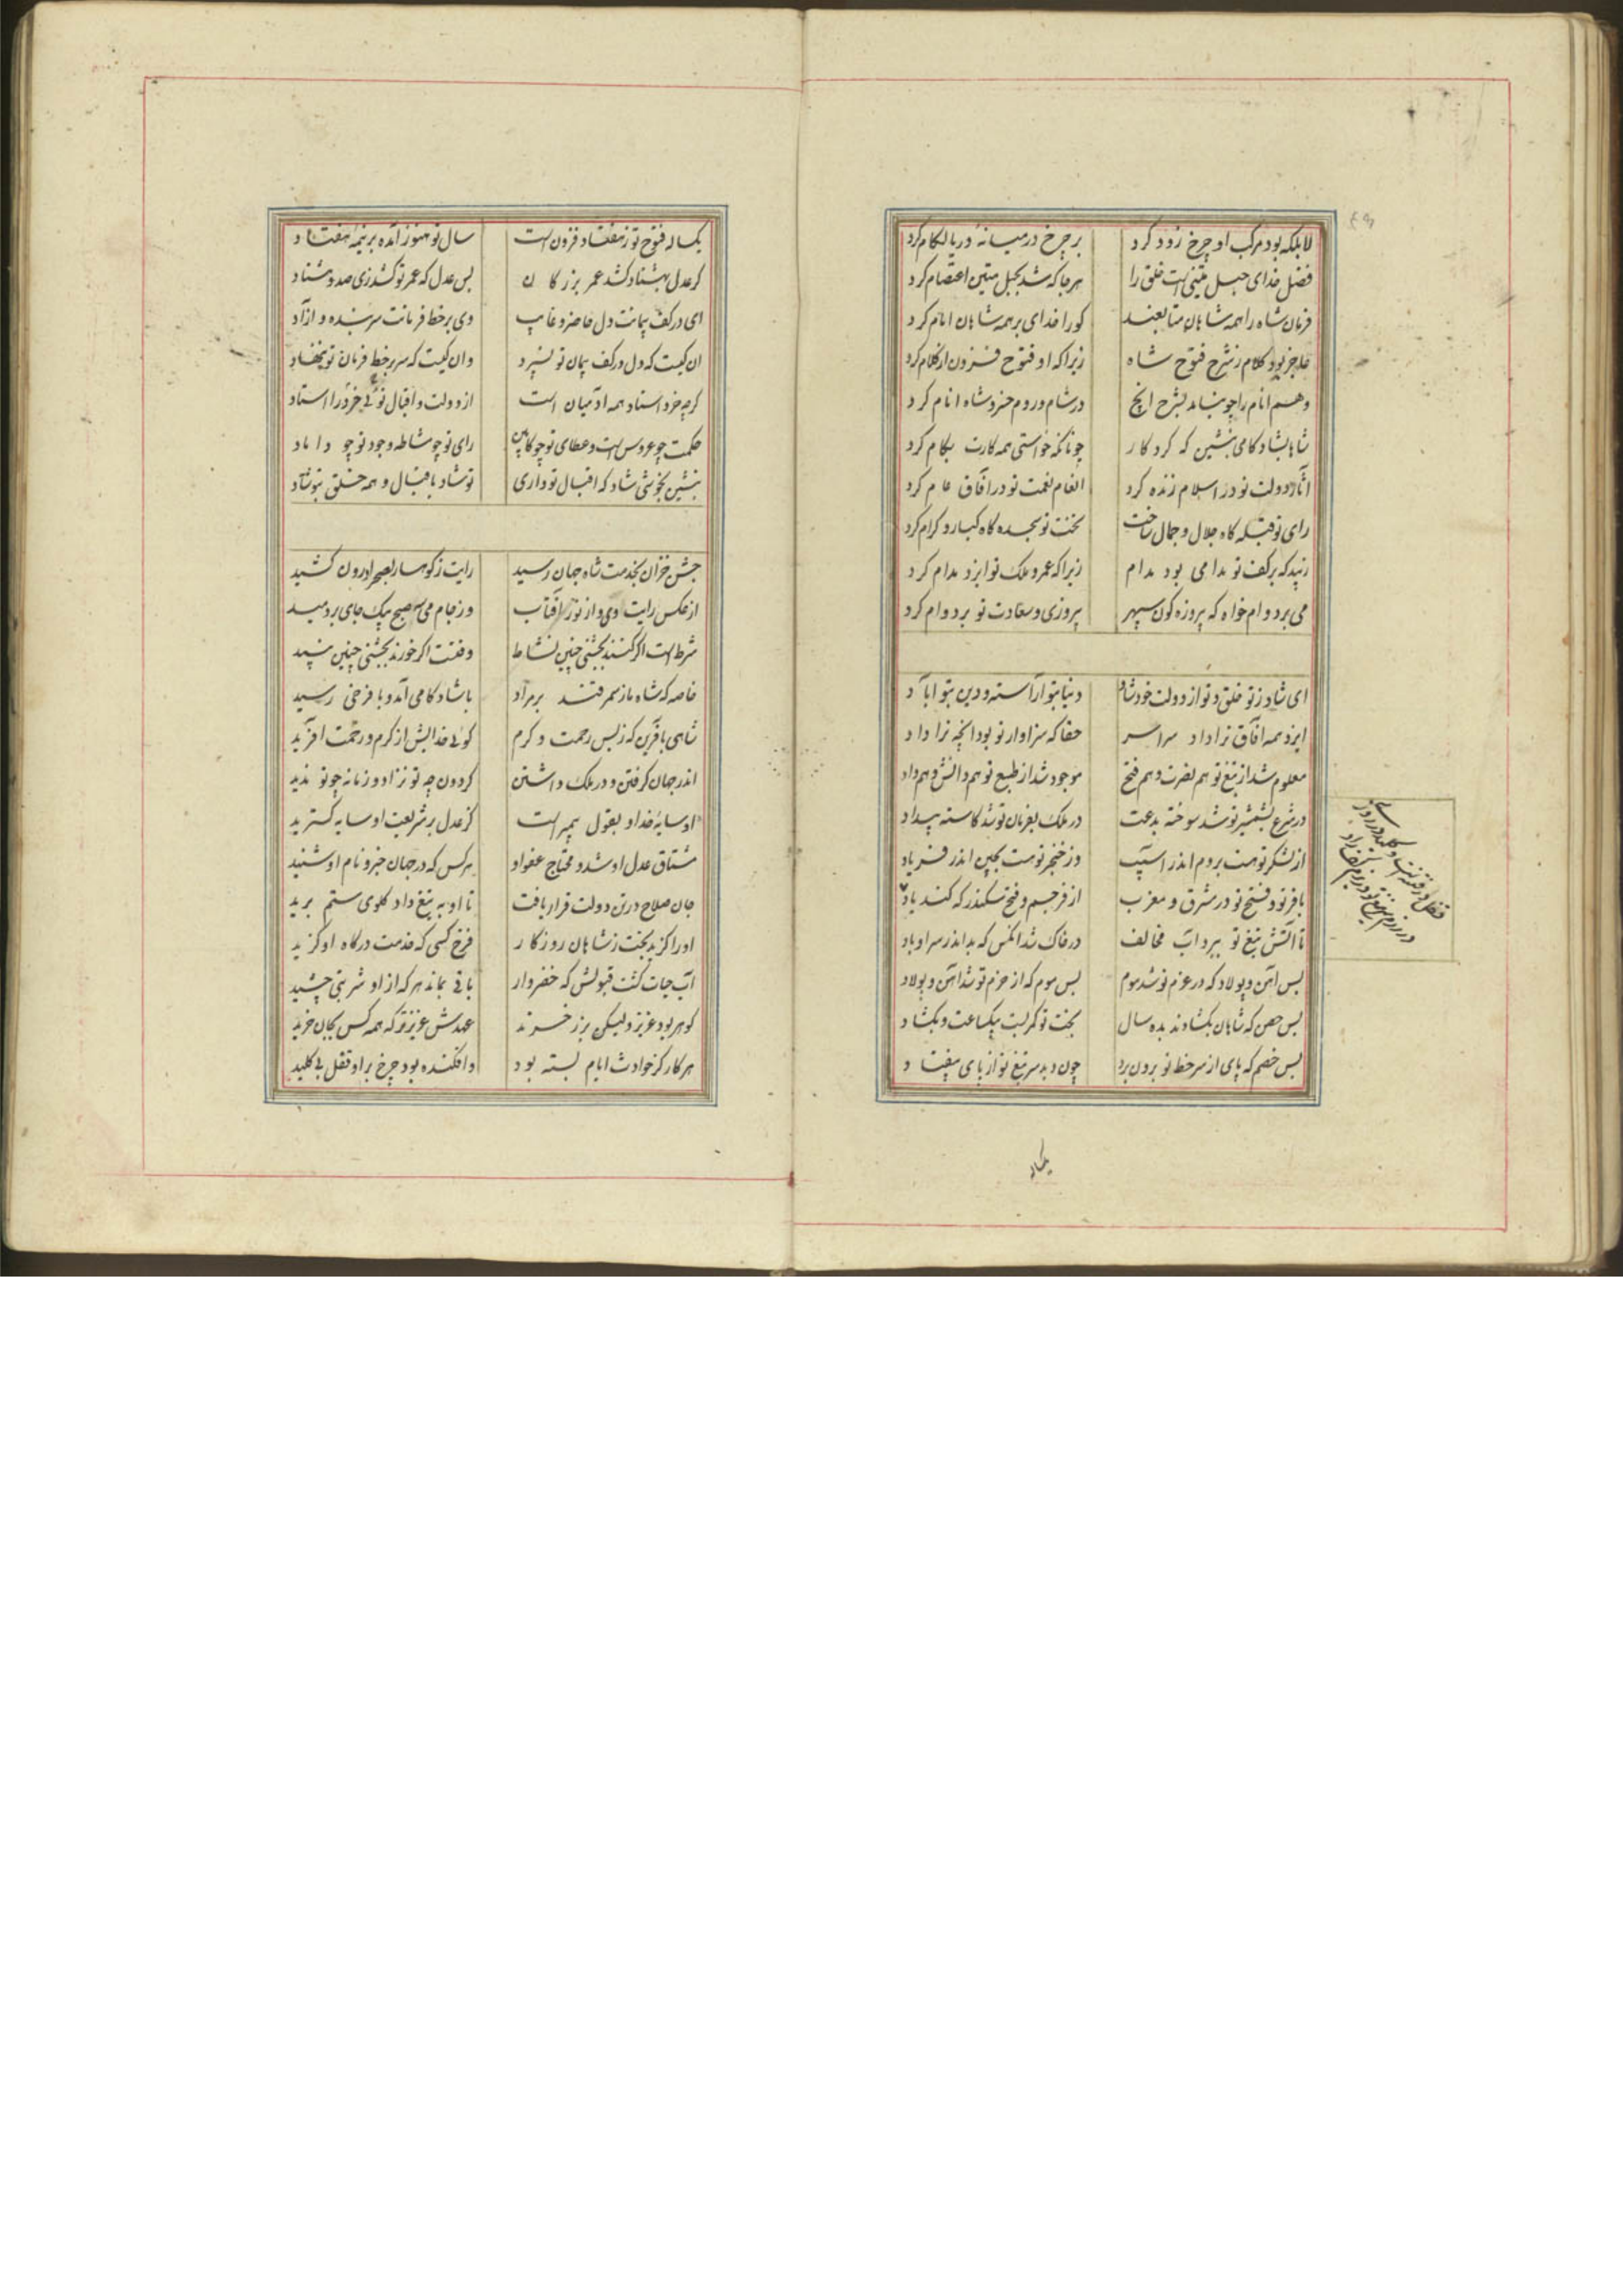 لابلکه بود مرکب او چرخ زود کرد بر چرخ در میانه دریا لکام کرد
فضل خدای حبل متینی است خلق را هرجا که شد بحبل متین اعتصام کرد
فرمان شاه را همه شاهان متابعند کورا خدای بر همه شاهان امام کرد
عاجز بود کلام ز شرح فتوح شاه زیرا که او فتوح فزون از کلام کرد
وهم انام راچو نیامد بشرح انچ در شام و روم خسرو شاه انام کرد
شاها بشادکامی بنشین که کردکار چونانکه خواستی همه کارت بکام کرد
آثار دولت تو در اسلام زنده کرد انعام نعمت تو در آفاق عام کرد
رای تو قبله کاه جلال و جمال ساخت تخت تو سجده کاه کبار و کرام کرد
زیبد که بر کف تو مدامی بود مدام زیرا که عمر و ملک تو ایزد مدام کرد
می بر دوام خواه که پیروزه کون سپهر پیروزی و سعادت تو بر دوام کرد
ای شاد ز تو خلق و تو از دولت خود شاد دنیا بتو آراسته و دین بتو آباد
ایزد همه آفاق ترا داد سراسر حقا که سزاوار تو بود انچه ترا داد
معلوم شد از تیغ تو هم نصرت و هم فتح موجود شد از طبع تو هم دانش و هم داد
در شرع بشمشیر تو شد سوخته بدعت در ملک بفرمان تو شد کاسته بیداد
از لشکر تو هست بروم اندر آسیب وز خنجر تو هست بچین اندر فریاد
با فر تو و فتح تو در مشرق و مغرب از فر جم و فتح سکندر که کند یاد
تا آتش تیغ تو ببرد آب مخالف در خاک شد انکس که بد اندر سر او باد
بس آهن و پولاد که در عزم تو شد موم بس موم که از حزم تو شد آهن و پولاد
بس حصن که شاهان بکشادند بده سال بخت تو کمر بست بیکساعت و بکشاد
بس خصم که پای از سر خط تو برون برد چون دید سر تیغ تو از پای بیفتاد
در رزم سر تیغ تو در روم
یکساله
یکساله فتوح تو ز هفتاد فزون است سال تو هنوز آمده بر نیمه هفتاد
کر عدل بهشتاد کشد عمر بزرکان بس عدل که عمر تو کشد زی صد و هشتاد
ای در کف پیمانت دل حاضر و غایب وی بر خط فرمانت سر بنده و آزاد
آن کیست که دل در کف پیمان تو نسپرد وان کیست که سر بر خط فرمان تو ننهاد
کرچه خرد استاد همه آدمیان است از دولت و اقبال توئی خرد را استاد
حکمت چو عروس است و عطای تو چو کابین رای تو چو مشاطه و جود تو چو داماد
بنشین بخوشی شاد که اقبال تو داری تو شاد باقبال و همه خلق بتو شاد
جشن خزان بخدمت شاه جهان رسید رایت ز کوهسار بصحرا درون کشید
از عکس رایت وی و از نور آفتاب وز جام می سه صبح بیک جای بردمید
شرط است اکر کنند بجشنی چنین نشاط وقتست اکر خورند بجشنی چنین نبید
خاصه که شاه ما ز سمرقند بر مراد با شادکامی آمد و با فرخی رسید
شاهی با فرین که ز بس رحمت و کرم کوئی خدایش از کرم و رحمت آفرید
اندر جهان کرفتن و در ملک داشتن کردون چه تو نزاد و زمانه چو تو ندید
او سایه خدا و بقول پیمبر است کز عدل بر شریعت او سایه کسترید
مشتاق عدل او شد و محتاج عفو او هر کس که در جهان خبر و نام او شنید
جان صلاح در تن دولت قرار یافت تا او به تیغ داد کلوی ستم برید
او را کزید بخت ز شاهان روزکار فرخ کسی که خدمت درکاه او کزید
آب حیات کشت قبولش که خضروار باقی بماند هر که از او شربتی چشید
کوهر بود عزیز و لیکن بزر خرند عهدش عزیزتر که همه کس بجان خرید
هر کار کز حوادث ایام بسته بود وافکنده بود چرخ بر او قفل بی کلید